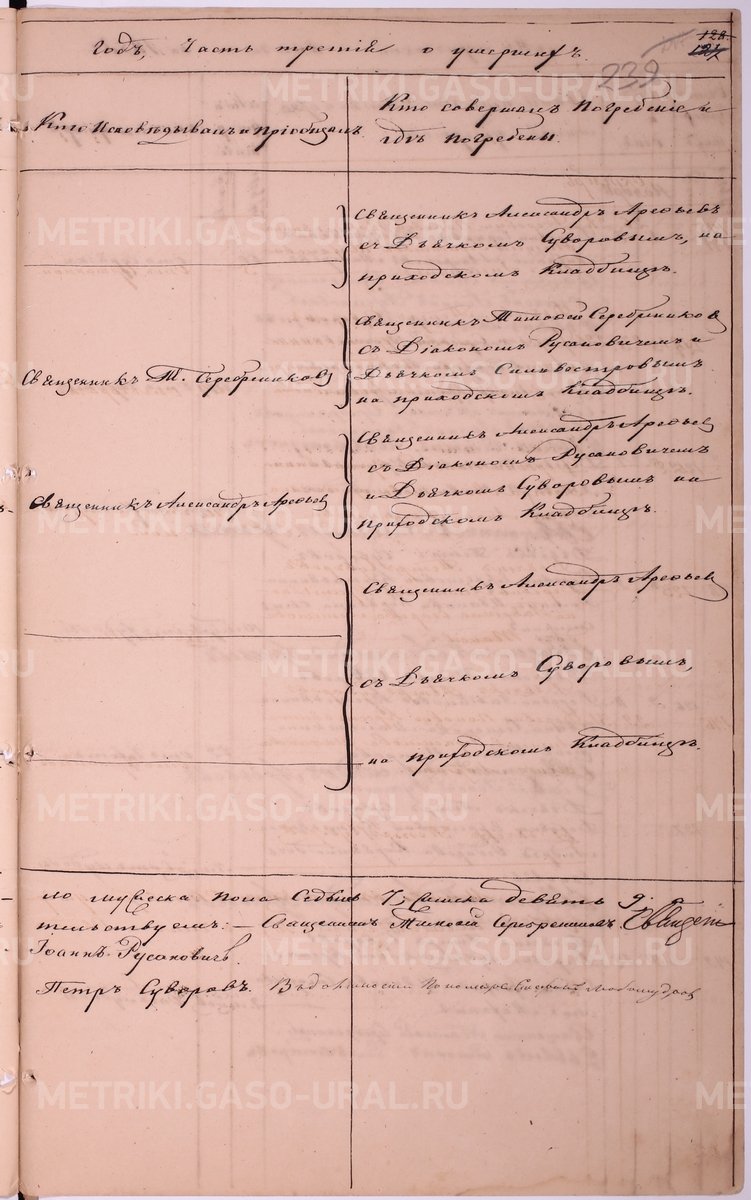 Годъ, Часть третія о умершихъ.
128.
127
239
Кто Исповѣдывалъ и Пріобщалъ.
Кто совершалъ Погребеніе и
гдѣ погребены.
Священникъ Александръ Арефьевъ
съ Дьячкомъ Суворовымъ, на
приходскомъ Кладбищѣ.
Священникъ Т. Серебрениковъ
Священникъ Тимофей Серебрениковъ
съ Діакономъ Русановичемъ и
Дьячкомъ Сильвестровымъ
на приходскомъ Кладбищѣ.
Священникъ Александръ Арефьевъ
Священникъ Александръ Арефьевъ
съ Діакономъ Русановичемъ
и Дьячкомъ Суворовымъ на
Приходскомъ Кладбищѣ.
Священникъ Александръ Арефьевъ
съ Дьячкомъ Суворовымъ,
на приходскомъ Кладбищѣ.
ло мужеска пола Седьмь 7, женска девять 9.
тельствуемъ: – Священникъ Тимофей Серебрениковъ Священ
Іоаннъ Русановичъ.
Петръ Суворовъ. Въ должности Пономаря
METRIKI.GASO-URAL.RU